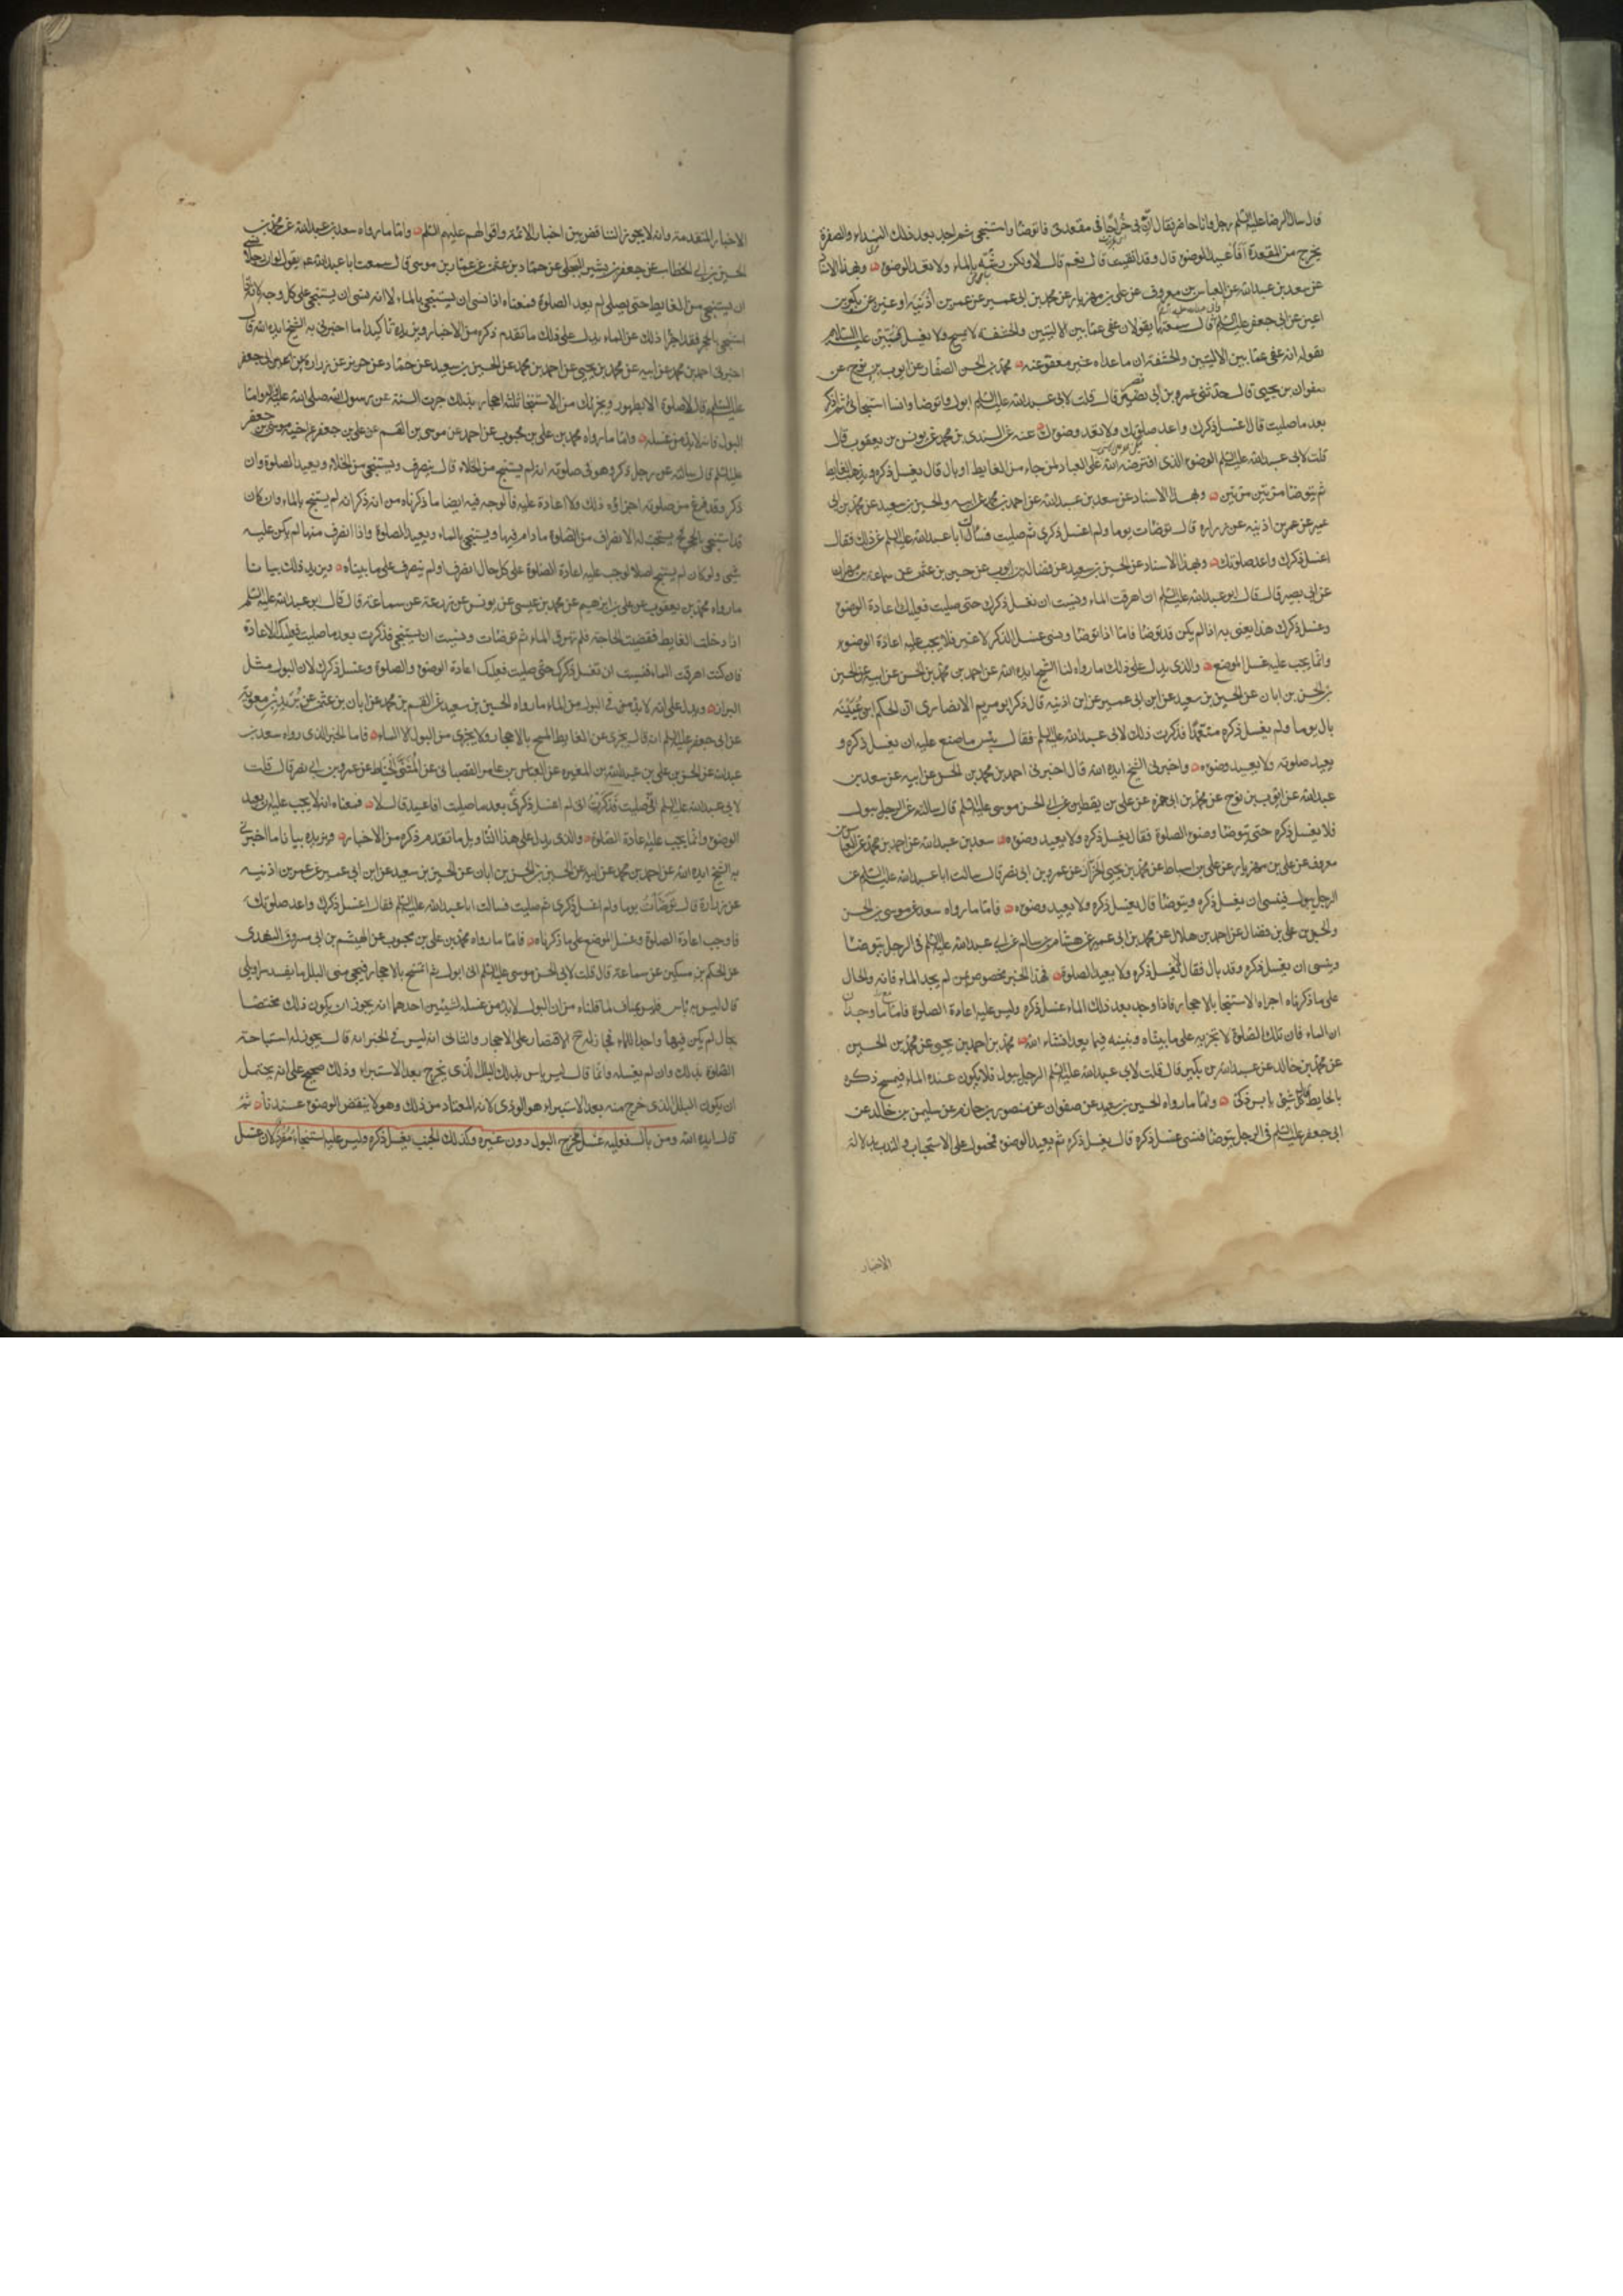 قال سال الرضا عليه السلم رجل وانا حاضر فقال ان بي خراجا في مقعدتي فاتوضا واستنجي ثم اجد بعد ذلك الندا والصفرة
يخرج من المقعدة افاعيد الوضوء قال وقد انقيت قال نعم قال لا ولكن رشه بالماء ولا تعد الوضوء وبهذا الاسناد
عن سعد بن عبدالله عن العباس بن معروف عن علي بن مهزيار عن محمد بن ابي عمير عن عمر بن اذنيه او غيره عن بكير بن
اعين عن ابي جعفر عليه السلم قال سمعته يقولان عفي عما بين الاليتين والحشفة لا يمسح ولا يغسل عليه السلام
بقوله انه عفي عما بين الاليتين والحشفة ان ما عداه غير معفو عنه محمد بن الحسن الصفار عن ايوب بن نوح عن
صفوان بن يحيى قال حدثني عمرو بن ابي نصر قال قلت لابي عبدالله عليه السلم ابول واتوضا وانسا استنجائي ثم اذكر
بعد ما صليت قال اغسل ذكرك واعد صلوتك ولا تعد وضوءك عنه عن السندي بن محمد عن يونس بن يعقوب قال
قلت لابي عبدالله عليه السلم الوضوء الذي افترضه الله على العباد لمن جاء من الغايط او بال قال يغسل ذكره ويذهب الغايط
ثم يتوضا مرتين مرتين وبهذا الاسناد عن سعد بن عبدالله عن احمد بن محمد عن ابيه والحسين بن سعيد عن محمد بن ابي
عمير عن عمر بن اذنيه عن زراره قال توضات يوما ولم اغسل ذكري ثم صليت فسالت ابا عبدالله عليه السلم عن ذلك فقال
اغسل ذكرك واعد صلوتك وبهذا الاسناد عن الحسين بن سعيد عن فضالة بن ايوب عن حسين بن عثمن عن سماعة بن مهران
عن ابي بصير قال قال ابو عبدالله عليه السلم ان اهرقت الماء ونسيت ان تغسل ذكرك حتى صليت فعليك اعادة الوضوء
وغسل ذكرك هذا يعني به اذا لم يكن قد توضا فاما اذا توضا ونسي غسل الذكر لا غير فلا يجب عليه اعادة الوضوء
وانما يجب عليه غسل الموضع والذي يدل على ذلك ما رواه لنا الشيخ ايده الله عن احمد بن محمد بن الحسن عن ابيه عن الحسين
بن الحسن بن ابان عن الحسين بن سعيد عن ابن ابي عمير عن ابن اذنيه قال ذكر ابو مريم الانصاري ان الحكم بن عيينه
بال يوما ولم يغسل ذكره متعمدا فذكرت ذلك لابي عبدالله عليه السلم فقال بئس ما صنع عليه ان يغسل ذكره و
يعيد صلوته ولا يعيد وضوءه واخبرني الشيخ ايده الله قال اخبرني احمد بن محمد بن الحسن عن ابيه عن سعد بن
عبدالله عن ايوب بن نوح عن محمد بن ابي حمزه عن علي بن يقطين عن ابي الحسن موسى عليه السلم قال سالته عن الرجل يبول
فلا يغسل ذكره حتى يتوضا وضوء الصلوة فقال يغسل ذكره ولا يعيد وضوءه سعد بن عبدالله عن احمد بن محمد عن العباس بن
معروف عن علي بن مهزيار عن علي بن اسباط عن محمد بن يحيى الخزاز عن عمرو بن ابي نصر قال سالت ابا عبدالله عليه السلم عن
الرجل يبول فينسى ان يغسل ذكره ويتوضا قال يغسل ذكره ولا يعيد وضوءه فاما ما رواه سعد عن موسى بن الحسن
والحسن بن علي بن فضال عن احمد بن هلال عن محمد بن ابي عمير عن هشام بن سالم عن ابي عبدالله عليه السلم في الرجل يتوضا
وينسى ان يغسل ذكره وقد بال فقال يغسل ذكره ولا يعيد الصلوة فهذا الخبر مخصوص بمن لم يجد الماء فانه والحال
على ما ذكرناه اجزاه الاستنجا بالاحجار فاذا وجد بعد ذلك الماء غسل ذكره وليس عليه اعادة الصلوة فاما مع وجدان
الماء فان تلك الصلوة لا تجزيه على ما بيناه ونبينه فيما بعد انشاء الله محمد بن احمد بن يحيى عن محمد بن الحسين
عن محمد بن خالد عن عبدالله بن بكير قال قلت لابي عبدالله عليه السلم الرجل يبول فلا يكون عنده الماء فيمسح ذكره
بالحايط قال كل شيء يابس ذكي واما ما رواه الحسين بن سعيد عن صفوان عن منصور بن حازم عن سليمن بن خالد عن
ابي جعفر عليه السلم في الرجل يتوضا فنسى غسل ذكره قال يغسل ذكره ثم يعيد الوضوء فمحمول على الاستحباب والندب بدلالة
الاخبار
الاخبار المتقدمة وانه لا يجوز التناقض بين اخبار الائمة واقوالهم عليهم السلم واما ما رواه سعد بن عبدالله عن محمد بن
الحسين بن ابي الخطاب عن جعفر بن بشير البجلي عن حماد بن عثمن عن عمار بن موسى قال سمعت ابا عبدالله عم يقول لو ان رجلا نسي
ان يستنجي من الغايط حتى يصلي لم يعد الصلوة فمعناه اذا نسي ان يستنجي بالماء لا انه نسي ان يستنجي على كل وجه لانه اذا
استنجي بالحجر فقد اجزا ذلك عن الماء يدل على ذلك ما تقدم ذكره من الاخبار ويزيده تاكيدا ما اخبرني به الشيخ ايده الله قال
اخبرني احمد بن محمد عن ابيه عن محمد بن يحيى عن احمد بن محمد عن الحسين بن سعيد عن حماد عن حريز عن زرارة بن اعين عن ابي جعفر
عليه السلم قال لا صلوة الا بطهور ويجزيك من الاستنجا ثلثة احجار بذلك جرت السنة عن رسول الله صلى الله عليه واله واما
البول فانه لا بد من غسله واما ما رواه محمد بن علي بن محبوب عن احمد عن موسى بن القسم عن علي بن جعفر عن اخيه موسى بن جعفر
عليه السلم قال سالته عن رجل ذكر وهو في صلوته انه لم يستنج من الخلاء قال ينصرف ويستنجي من الخلاء ويعيد الصلوة وان
ذكر وقد فرغ من صلوته اجزاه ذلك ولا اعادة عليه فالوجه فيه ايضا ما ذكرناه من انه ذكر انه لم يستنج بالماء وان كان
قد استنجي بالحجر فحينئذ يستحب له الانصراف من الصلوة ما دام فيها ويستنجي بالماء ويعيد الصلوة واذا انصرف منها لم يكن عليه
شي ولو كان لم يستنج اصلا لوجب عليه اعادة الصلوة على كل حال انصرف او لم ينصرف على ما بيناه ويزيد ذلك بيانا
ما رواه محمد بن يعقوب عن علي بن ابرهيم عن محمد بن عيسى عن يونس عن زرعة عن سماعة قال قال ابو عبدالله عليه السلم
اذا دخلت الغايط فقضيت الحاجة فلم تهرق الماء ثم توضات ونسيت ان تستنجي فذكرت بعد ما صليت فعليك الاعادة
فان كنت اهرقت الماء فنسيت ان تغسل ذكرك حتى صليت فعليك اعادة الوضوء والصلوة وغسل ذكرك لان البول مثل
البراز ويدل على انه لا بد في البول من الماء ما رواه الحسين بن سعيد عن القسم بن محمد عن ابان بن عثمن عن بريد بن معوية
عن ابي جعفر عليه السلم انه قال يجزي عن الغايط المسح بالاحجار ولا يجزي من البول الا الماء فاما الخبر الذي رواه سعد بن
عبدالله عن الحسن بن علي بن عبدالله بن المغيره عن العباس بن عامر القصباني عن المثنى الحناط عن عمرو بن ابي نصر قال قلت
لابي عبدالله عليه السلم اني صليت فذكرت اني لم اغسل ذكري بعد ما صليت افاعيد قال لا فمعناه انه لا يجب عليه ان يعيد
الوضوء وانما يجب عليه اعادة الصلوة والذي يدل على هذا التاويل ما تقدم ذكره من الاخبار ويزيده بيانا ما اخبرني
به الشيخ ايده الله عن احمد بن محمد عن ابيه عن الحسين بن الحسن بن ابان عن الحسين بن سعيد عن ابن ابي عمير عن عمر بن اذنيه
عن زرارة قال توضات يوما ولم اغسل ذكري ثم صليت فسالت ابا عبدالله عليه السلم فقال اغسل ذكرك واعد صلوتك
فاوجب اعادة الصلوة وغسل الموضع على ما ذكرناه فاما ما رواه محمد بن علي بن محبوب عن الهيثم بن ابي مسروق النهدي
عن الحكم بن مسكين عن سماعة قال قلت لابي الحسن موسى عليه السلم اني ابول ثم اتمسح بالاحجار فيجي مني البلل ما يفسد سراويلي
قال ليس به باس فليس بمناف لما قلناه من ان البول لا بد من غسله لشيئين احدهما انه يجوز ان يكون ذلك مختصا
بحال لم يكن فيها واجدا للماء فجاز له ح الاقتصار على الاحجار والثاني انه ليس في الخبر انه قال يجوز له استباحة
الصلوة بذلك وان لم يغسله وانما قال ليس باس بذلك البلل الذي يخرج بعد الاستبراء وذلك صحيح على انه يحتمل
ان يكون البلل الذي خرج منه بعد الاستبراء هو الوذي لانه المعتاد من ذلك وهو لا ينقض الوضوء عندنا ثم
قال ايده الله ومن بال فعليه غسل مخرج البول دون غيره وكذلك الجنب يغسل ذكره وليس عليه استنجاء مفرد لان غسل